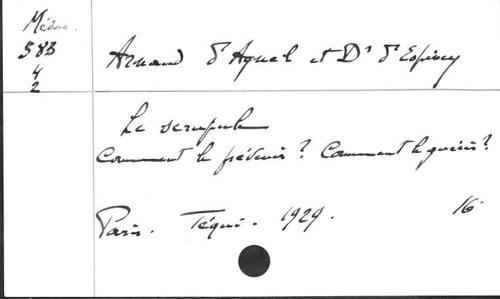 Médec.
583
4
2
Arnaud d'Agnel et Dr d'Espiney
Le scrupule
Comment le prévenir? Comment le guérir?
Paris. Téqui. 1929. 16